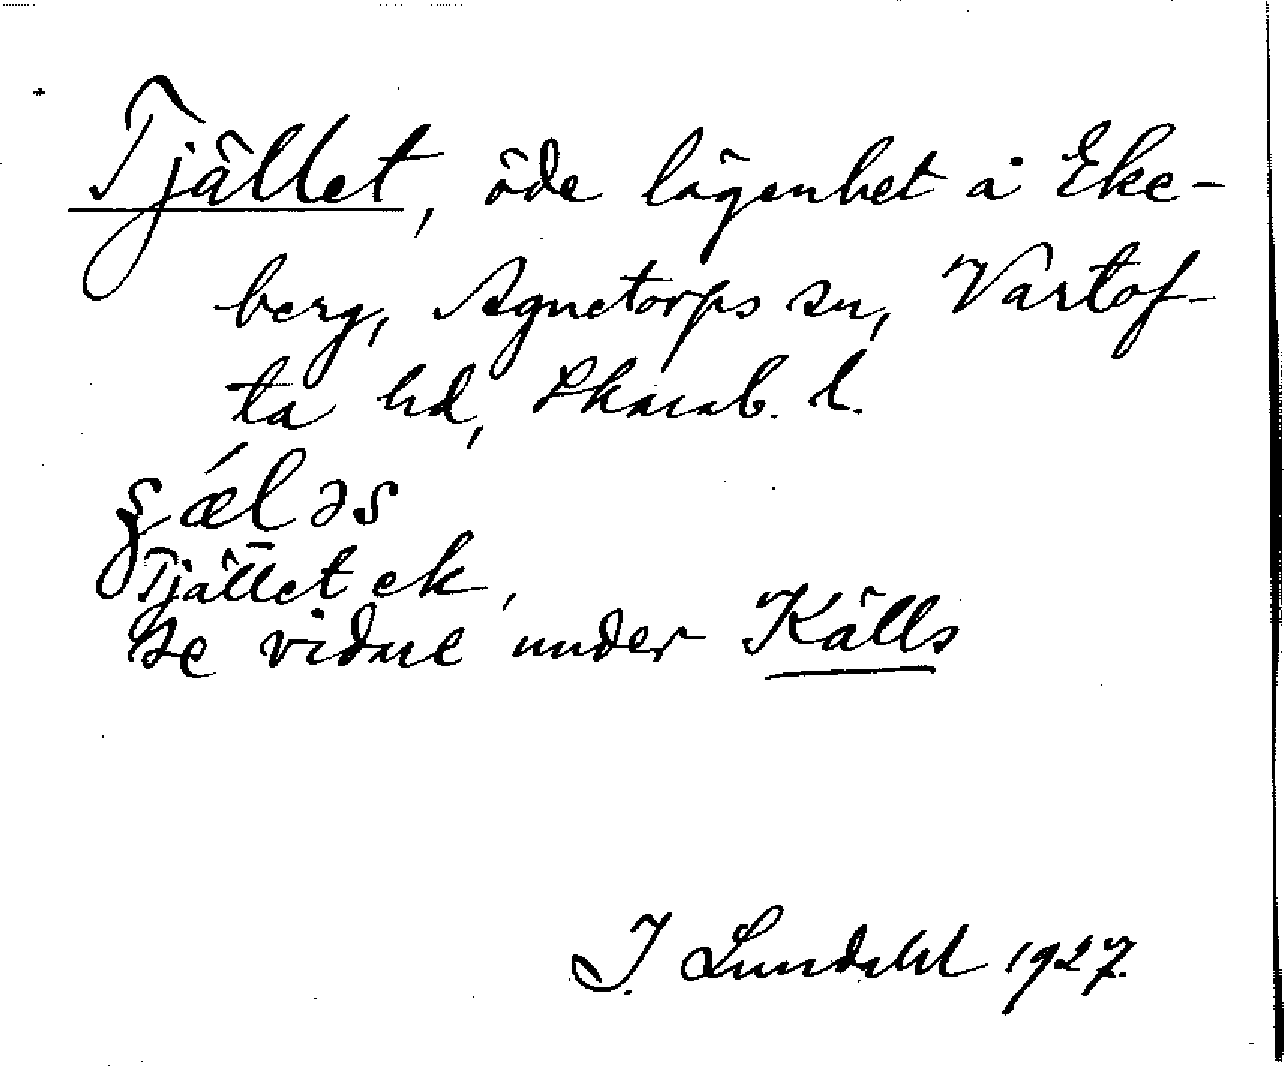 Tjället, öde lägenhet å Eke-
berg, Agnetorps sn, Vartof-
ta hd, Skarab. l.
ʂǽləs
Tjället ek,
Se vidare under Källs
J. Lundahl 1927.